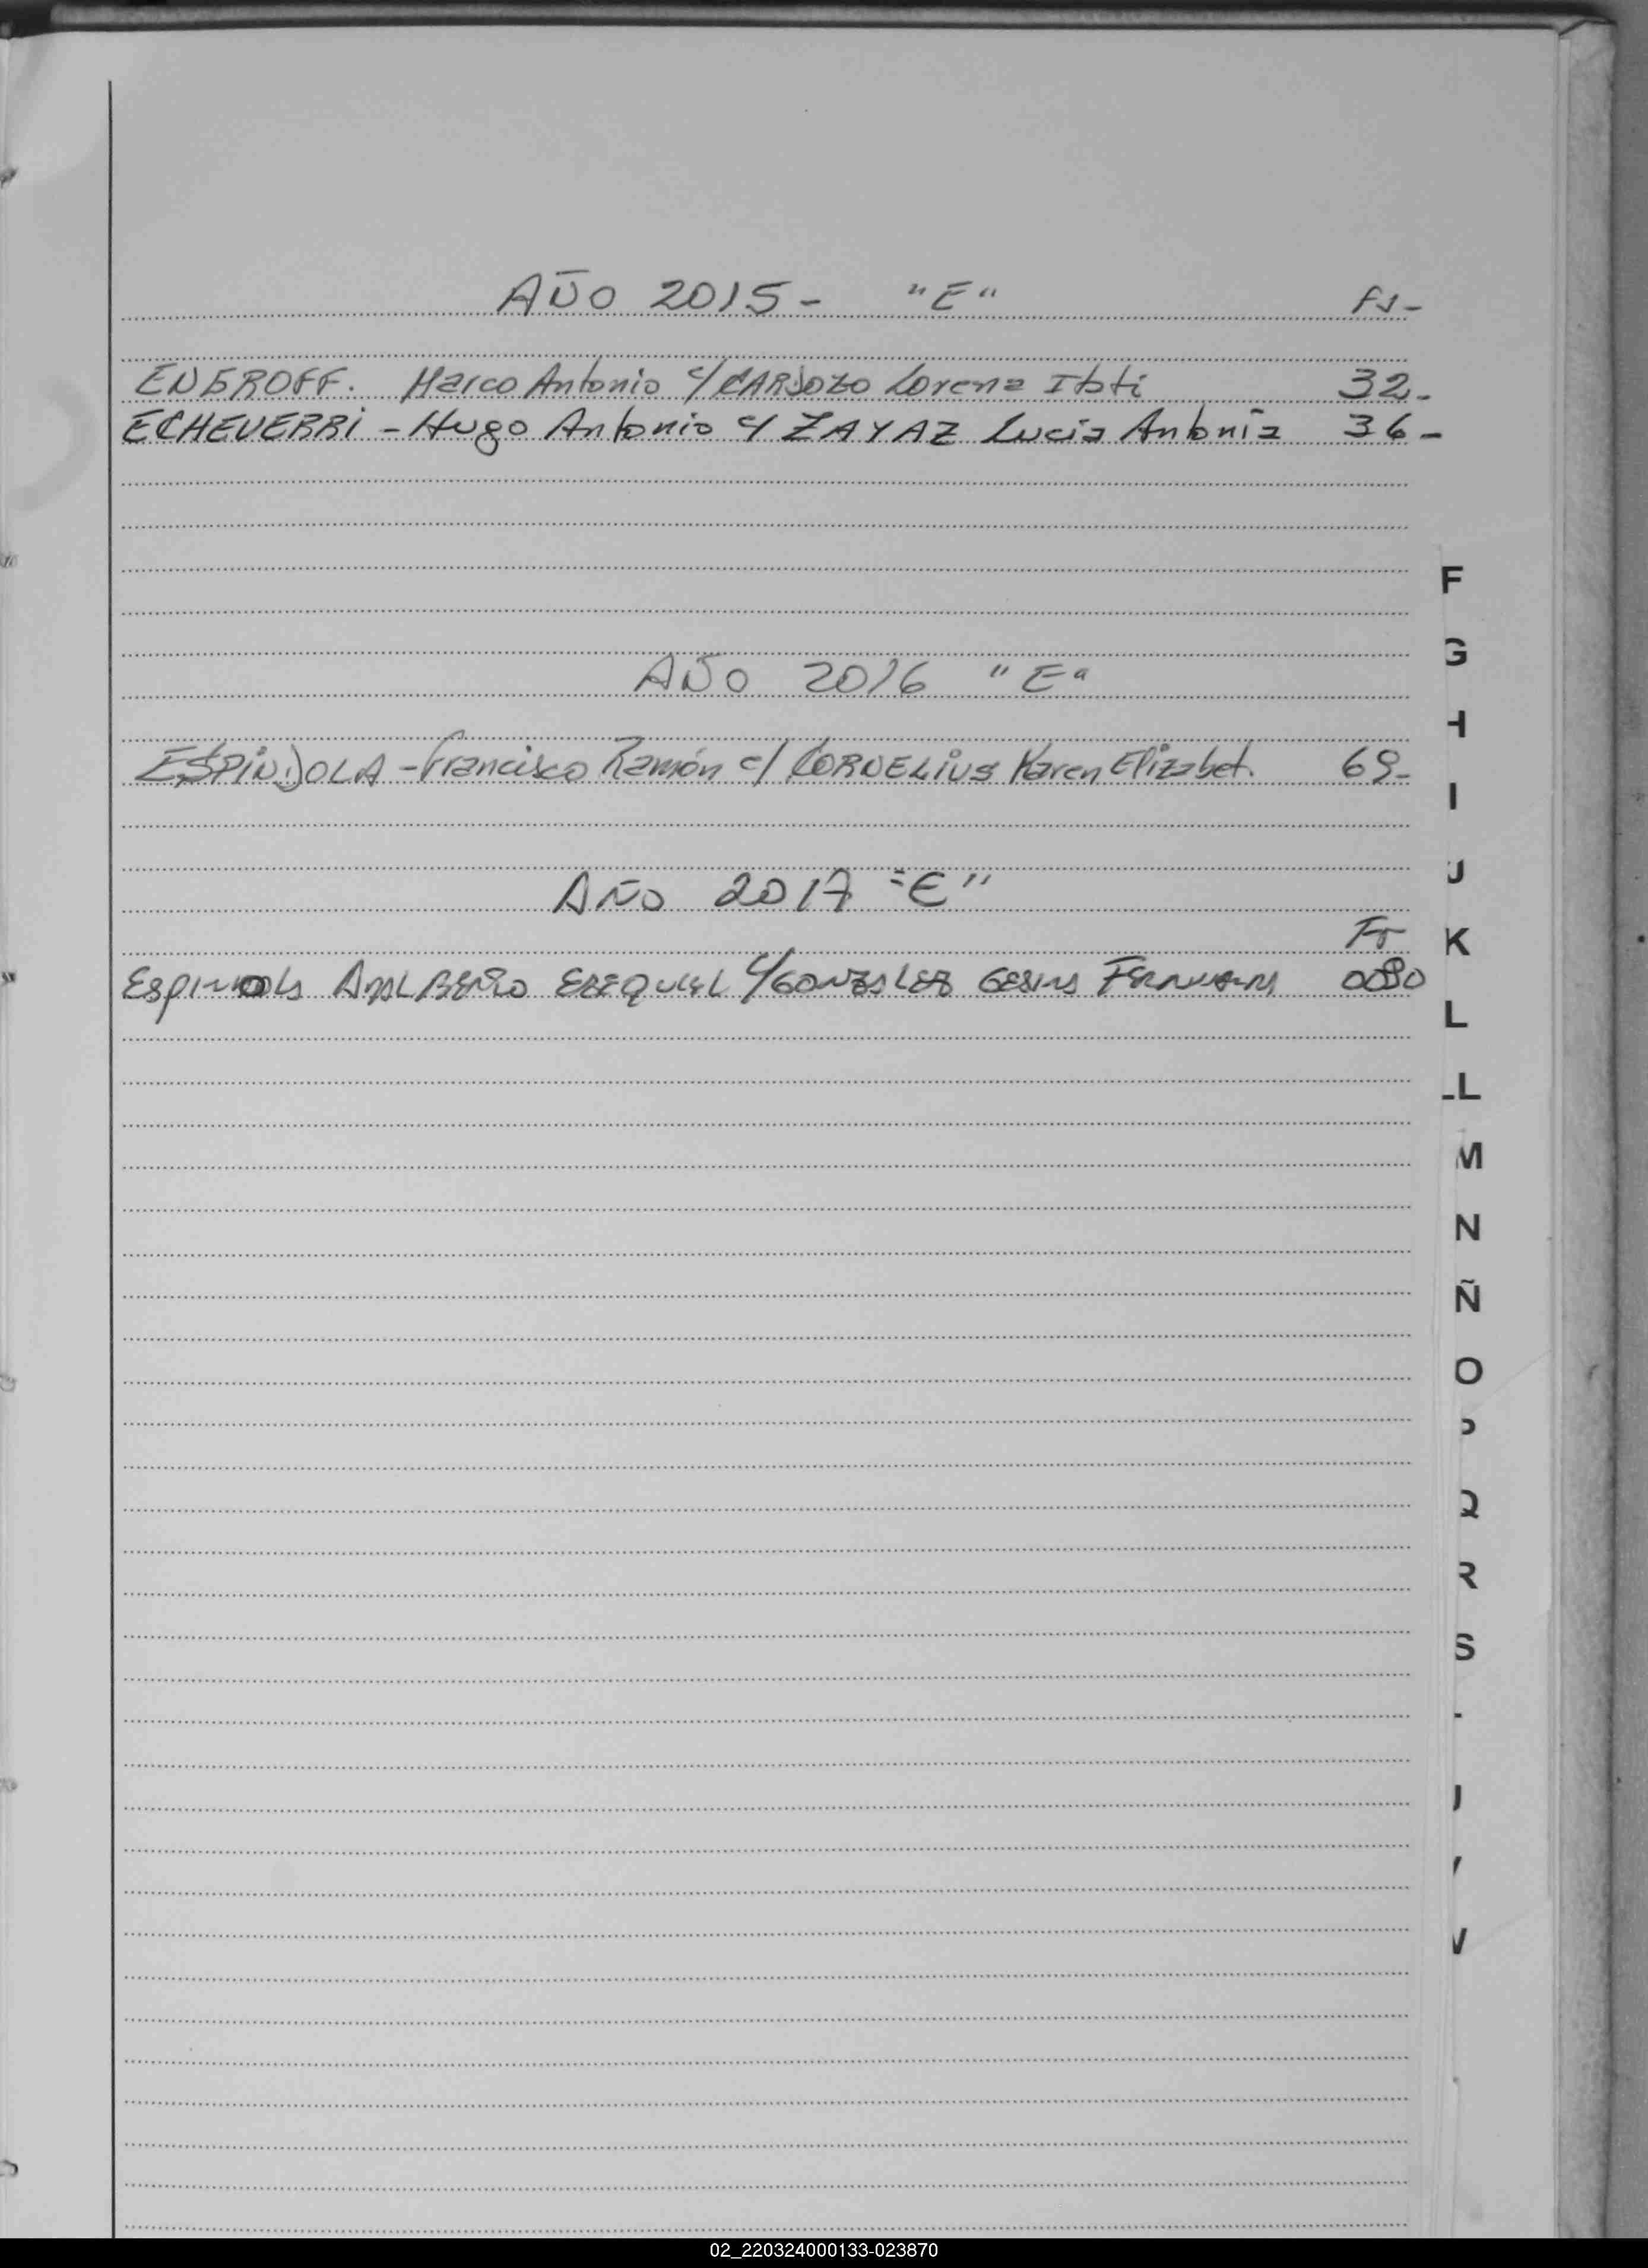 AÑO 2015 - "E" FS -
ENEROFF. Marco Antonio c/ CARDOZO Lorena Ibti 32.
ECHEVERRI - Hugo Antonio c/ ZAYAZ Lucia Antonia 36 -
AÑO 2016 "E"
ESPINDOLA - Francisco Ramón c/ CORNELIUS Karen Elizabet. 69 -
AÑO 2017 "E"
Espindola ADALBERTO EZEQUIEL c/ GONZALEZ 0080
F
G
H
I
J
K
L
LL
M
N
Ñ
O
P
Q
R
S
U
V
02_220324000133-023870